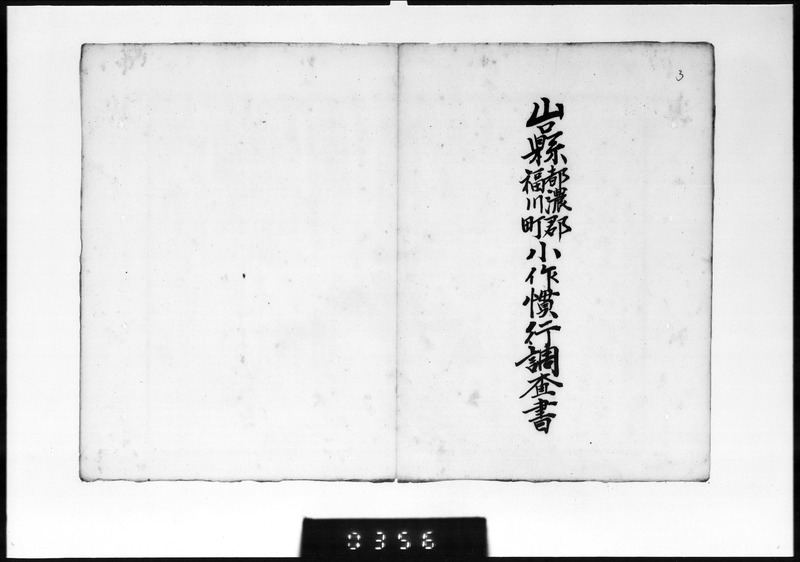 3
山口縣都濃郡福川町小作慣行調查書
0356